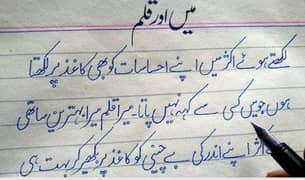 میں اور قلم
لکھتے ہوئے اکثر میں اپنے احساسات کو بھی کاغذ پر لکھتا
ہوں جو میں کسی سے کہہ نہیں پاتا۔ میرا قلم میرا بہترین ساتھی
اکثر اپنے اندر کی بے چینی کو کاغذ پر بکھیر کر بہت ہی